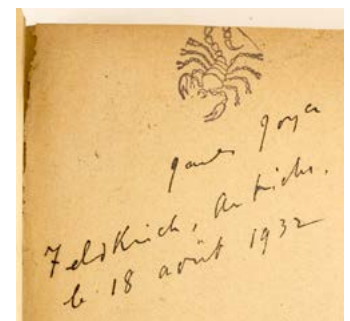 James Joyce
Feldkirch, Autriche,
le 18 août 1932